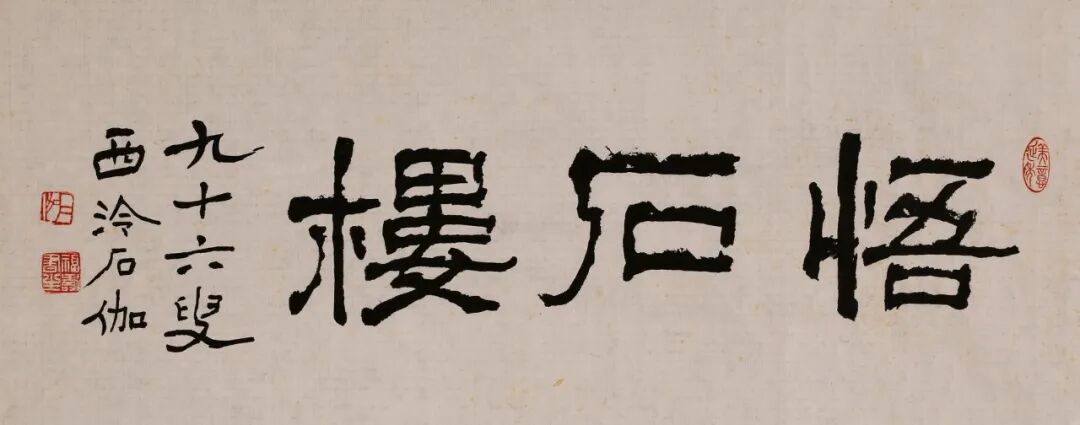 悟石樓
九十六叟
西泠石伽